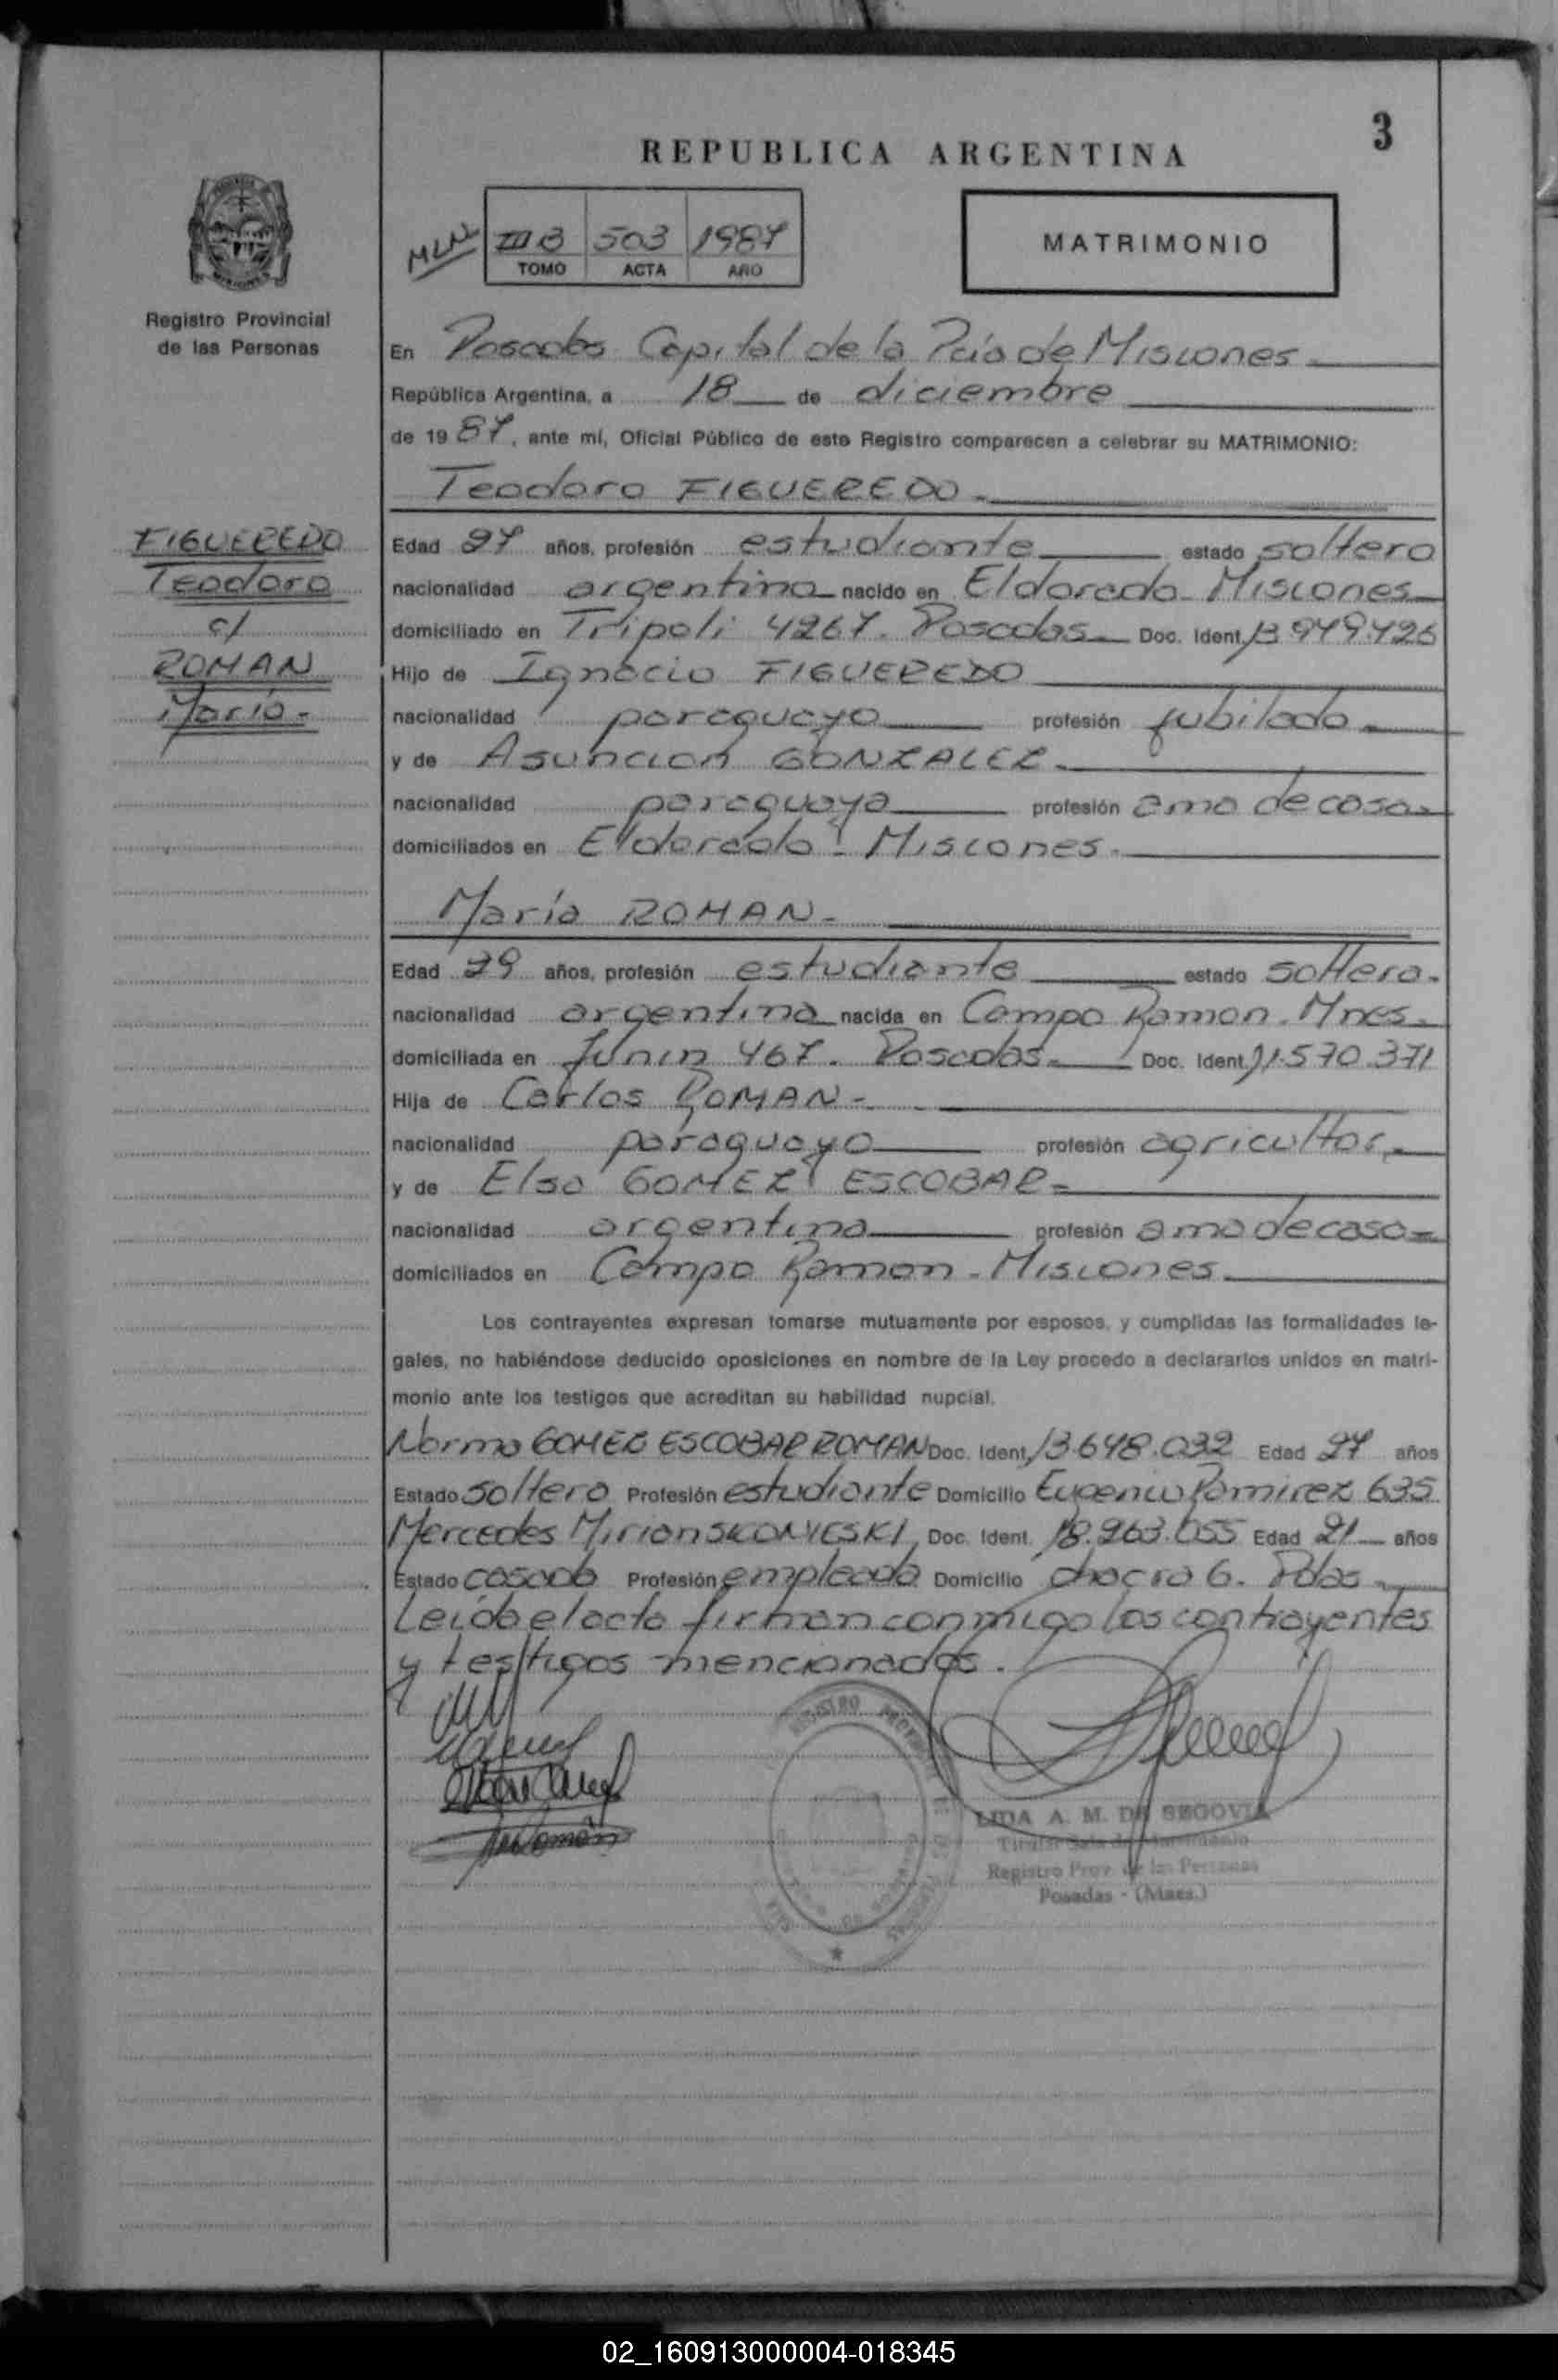 3
REPUBLICA ARGENTINA
III B 503 1987
TOMO ACTA AÑO
MATRIMONIO
Registro Provincial
de las Personas
En Posadas Capital de la Pcia de Misiones
República Argentina, a 18 de diciembre
de 1987, ante mí, Oficial Público de este Registro comparecen a celebrar su MATRIMONIO:
Teodoro FIGUEREDO
FIGUEREDO
Teodoro
c/
ROMAN
María
Edad 27 años, profesión estudiante estado soltero
nacionalidad argentina nacido en Eldorado Misiones
domiciliado en Tripoli 4267. Posadas Doc. Ident. 13.949.426
Hijo de Ignacio FIGUEREDO
nacionalidad paraguayo profesión jubilado
y de Asuncion GONZALEZ
nacionalidad paraguaya profesión ama de casa
domiciliados en Eldorado - Misiones
María ROMAN
Edad 29 años, profesión estudiante estado soltera
nacionalidad argentina nacida en Campo Ramon. Mnes
domiciliada en Junin 467. Posadas Doc. Ident. 11.570.371
Hija de Carlos ROMAN
nacionalidad paraguayo profesión agricultor
y de Elsa GOMEZ ESCOBAR
nacionalidad argentina profesión ama de casa
domiciliados en Campo Ramon - Misiones
Los contrayentes expresan tomarse mutuamente por esposos, y cumplidas las formalidades le-
gales, no habiéndose deducido oposiciones en nombre de la Ley procedo a declararlos unidos en matri-
monio ante los testigos que acreditan su habilidad nupcial.
Norma GOMEZ ESCOBAR ROMAN Doc. Ident. 13.648.032 Edad 27 años
Estado soltera Profesión estudiante Domicilio Eugenio Ramirez 635
Mercedes Mirian SKONIESKI Doc. Ident. 18.263.055 Edad 21 años
Estado casada Profesión empleada Domicilio chacra 6. Pdas
Leida el acta firman conmigo los contrayentes
y testigos mencionados.
LIDA A. M. DE SEGOVIA
Registro Prov. de las Personas
Posadas - (Mnes.)
02_160913000004-018345